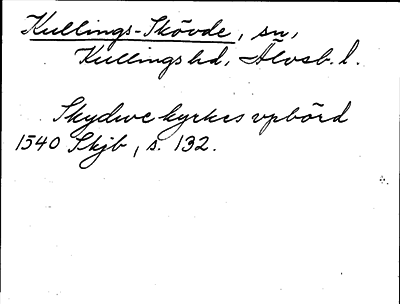 Kullings-Skövde, sn,
Kullings hd, Älvsb. l.
Skydwe kyrkes vpbörd
1540 Skjb, s. 132.